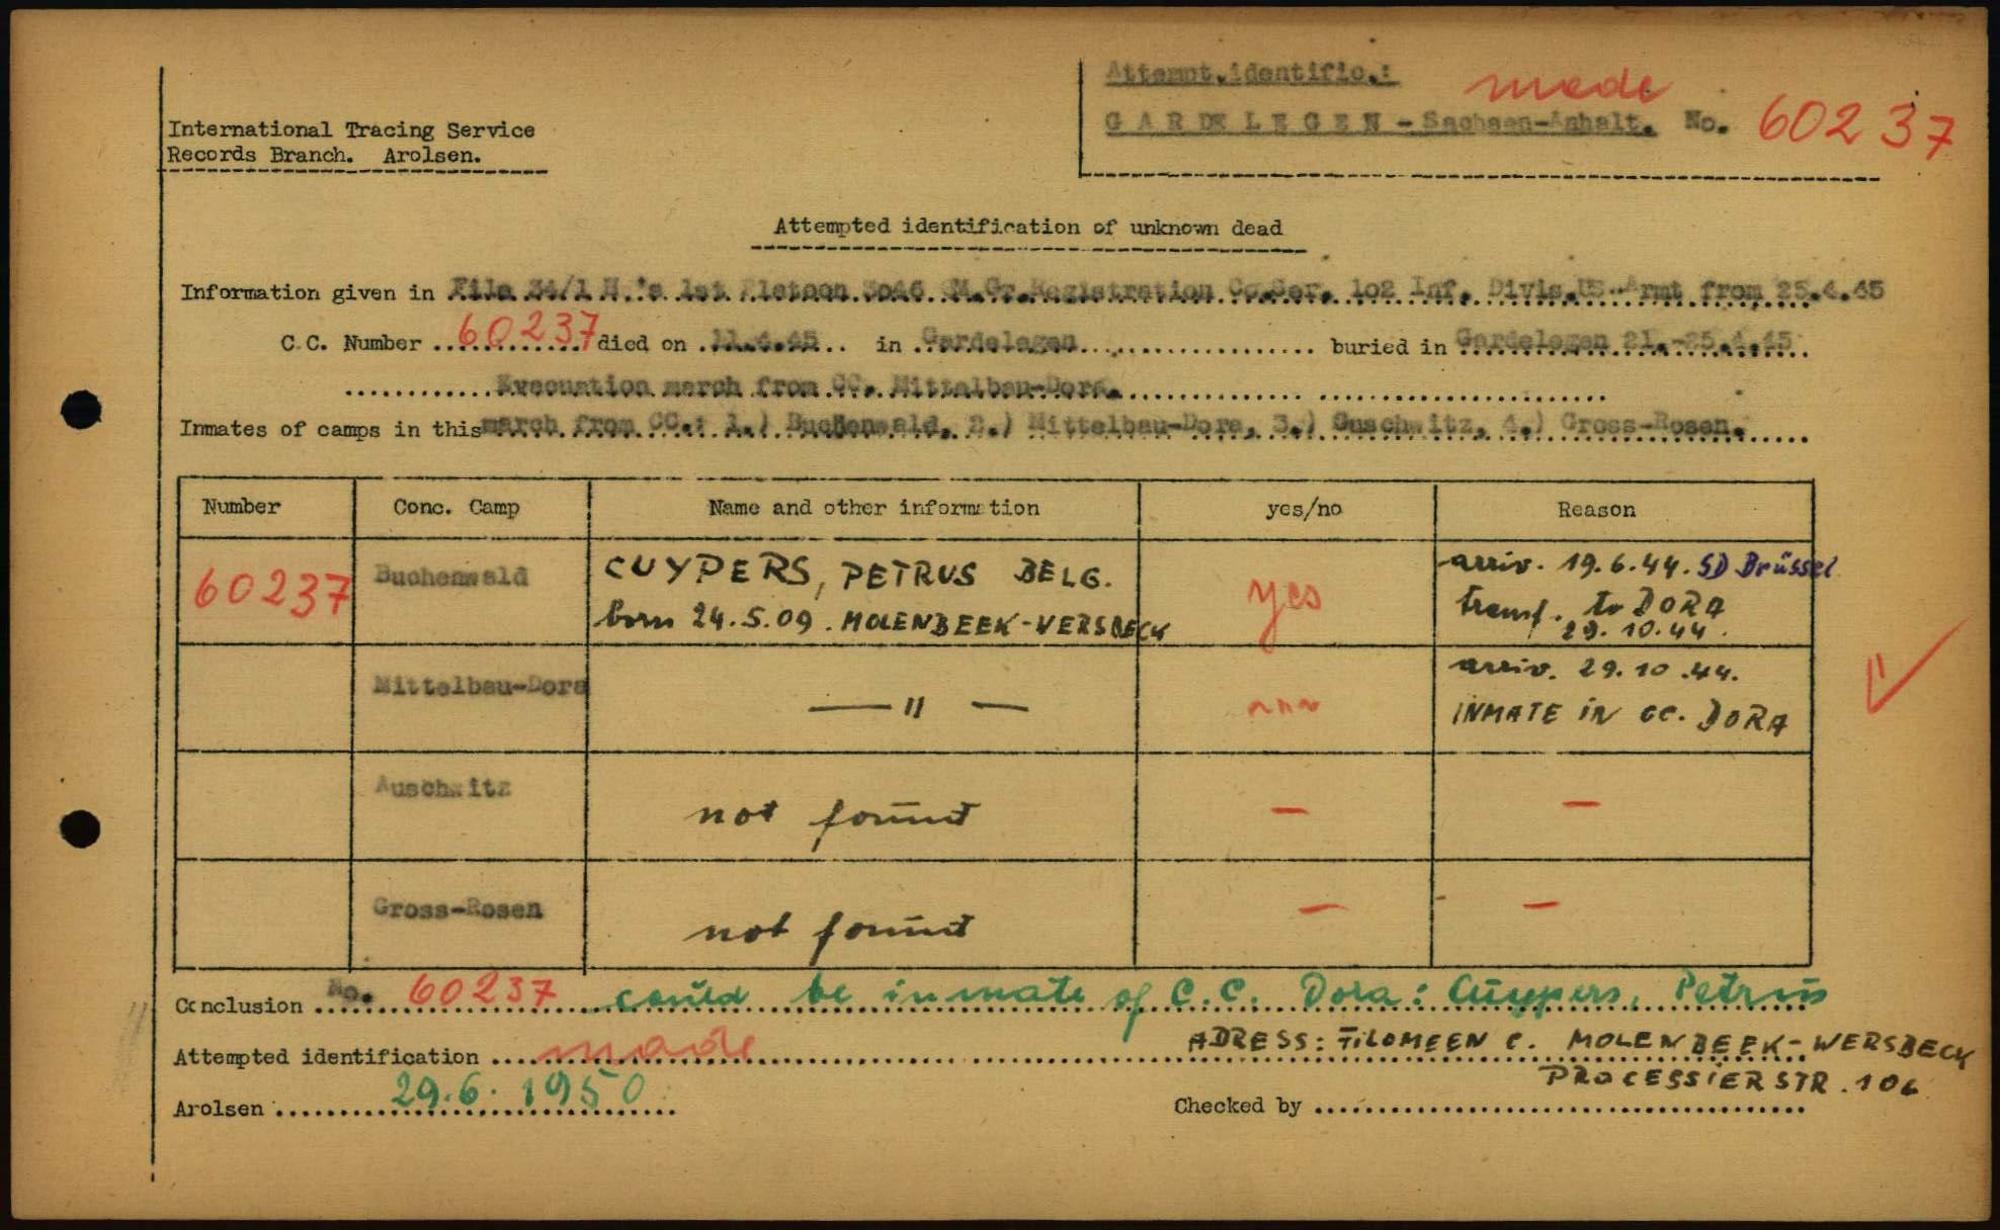 Attempt.identific.: made
GARDELEGEN - Sachsen-Anhalt. No. 60237
International Tracing Service
Records Branch. Arolsen.
Attempted identification of unknown dead
Information given in File 34/1 H.'s 1st Pletoon 3046 QM.Gr.Registration Co.Ser. 102 Inf. Divis.US-Armt from 25.4.45
C.C. Number 60237 died on 11.4.45 in Gardelegen buried in Gardelegen 21.-25.4.45
Evecuation march from CC. Mittelbau-Dora.
Inmates of camps in this march from CC.: 1.) Buchenwald, 2.) Mittelbau-Dora, 3.) Auschwitz, 4.) Gross-Rosen.
Number Conc. Camp Name and other information yes/no Reason
60237 Buchenwald CUYPERS, PETRUS BELG. yes arriv. 19.6.44. SD Brüssel
born 24.5.09. MOLENBEEK-WERSBECK transf. to DORA
29.10.44.
Mittelbau-Dora — " — arriv. 29.10.44.
INMATE IN CC. DORA
Auschwitz not found — —
Gross-Rosen not found — —
Conclusion No. 60237 could be inmate of C.C. Dora: Cuypers, Petrus
Attempted identification made ADRESS: FILOMEEN C. MOLENBEEK-WERSBECK
PROCESSIERSTR. 106
Arolsen 29.6.1950 Checked by